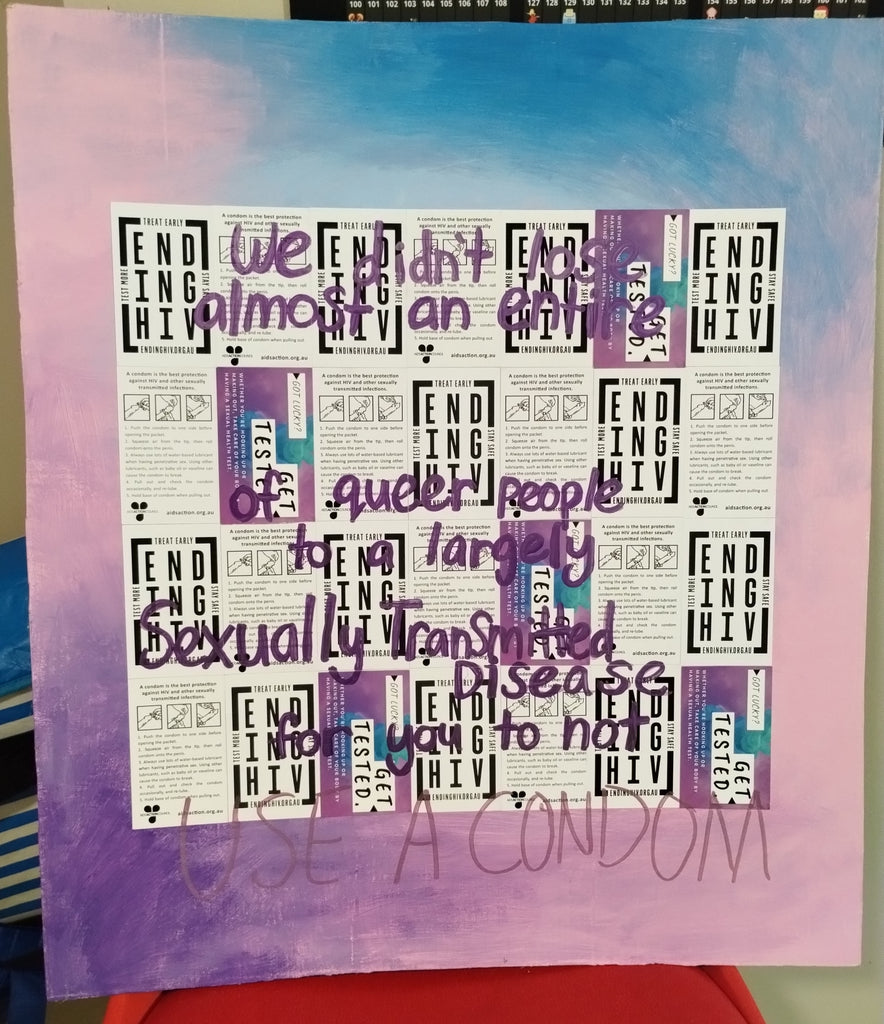 100 101 102 103 104 105 106 107 108 127 128 129 130 131 132 133 134 135 154 155 156 157 158 159
We didn't lose
almost an entire
of queer people
to a largely
Sexually Transmitted
Disease
for you to not
USE A CONDOM
TREAT EARLY
TEST MORE
END
ING
HIV
STAY SAFE
ENDINGHIV.ORG.AU
A condom is the best protection
against HIV and other sexually
transmitted infections.
1. Push the condom to one side before
opening the packet.
2. Squeeze air from the tip, then roll
condom onto the penis.
3. Always use lots of water-based lubricant
when having penetrative sex. Using other
lubricants, such as baby oil or vaseline can
cause the condom to break.
4. Pull out and check the condom
occasionally, and re-lube.
5. Hold base of condom when pulling out
AIDSACTIONCOUNCIL
aidsaction.org.au
GOT LUCKY?
GET
TESTED.
WHETHER YOU'RE HOOKING UP OR
MAKING OUT, TAKE CARE OF YOUR BODY BY
HAVING A SEXUAL HEALTH TEST